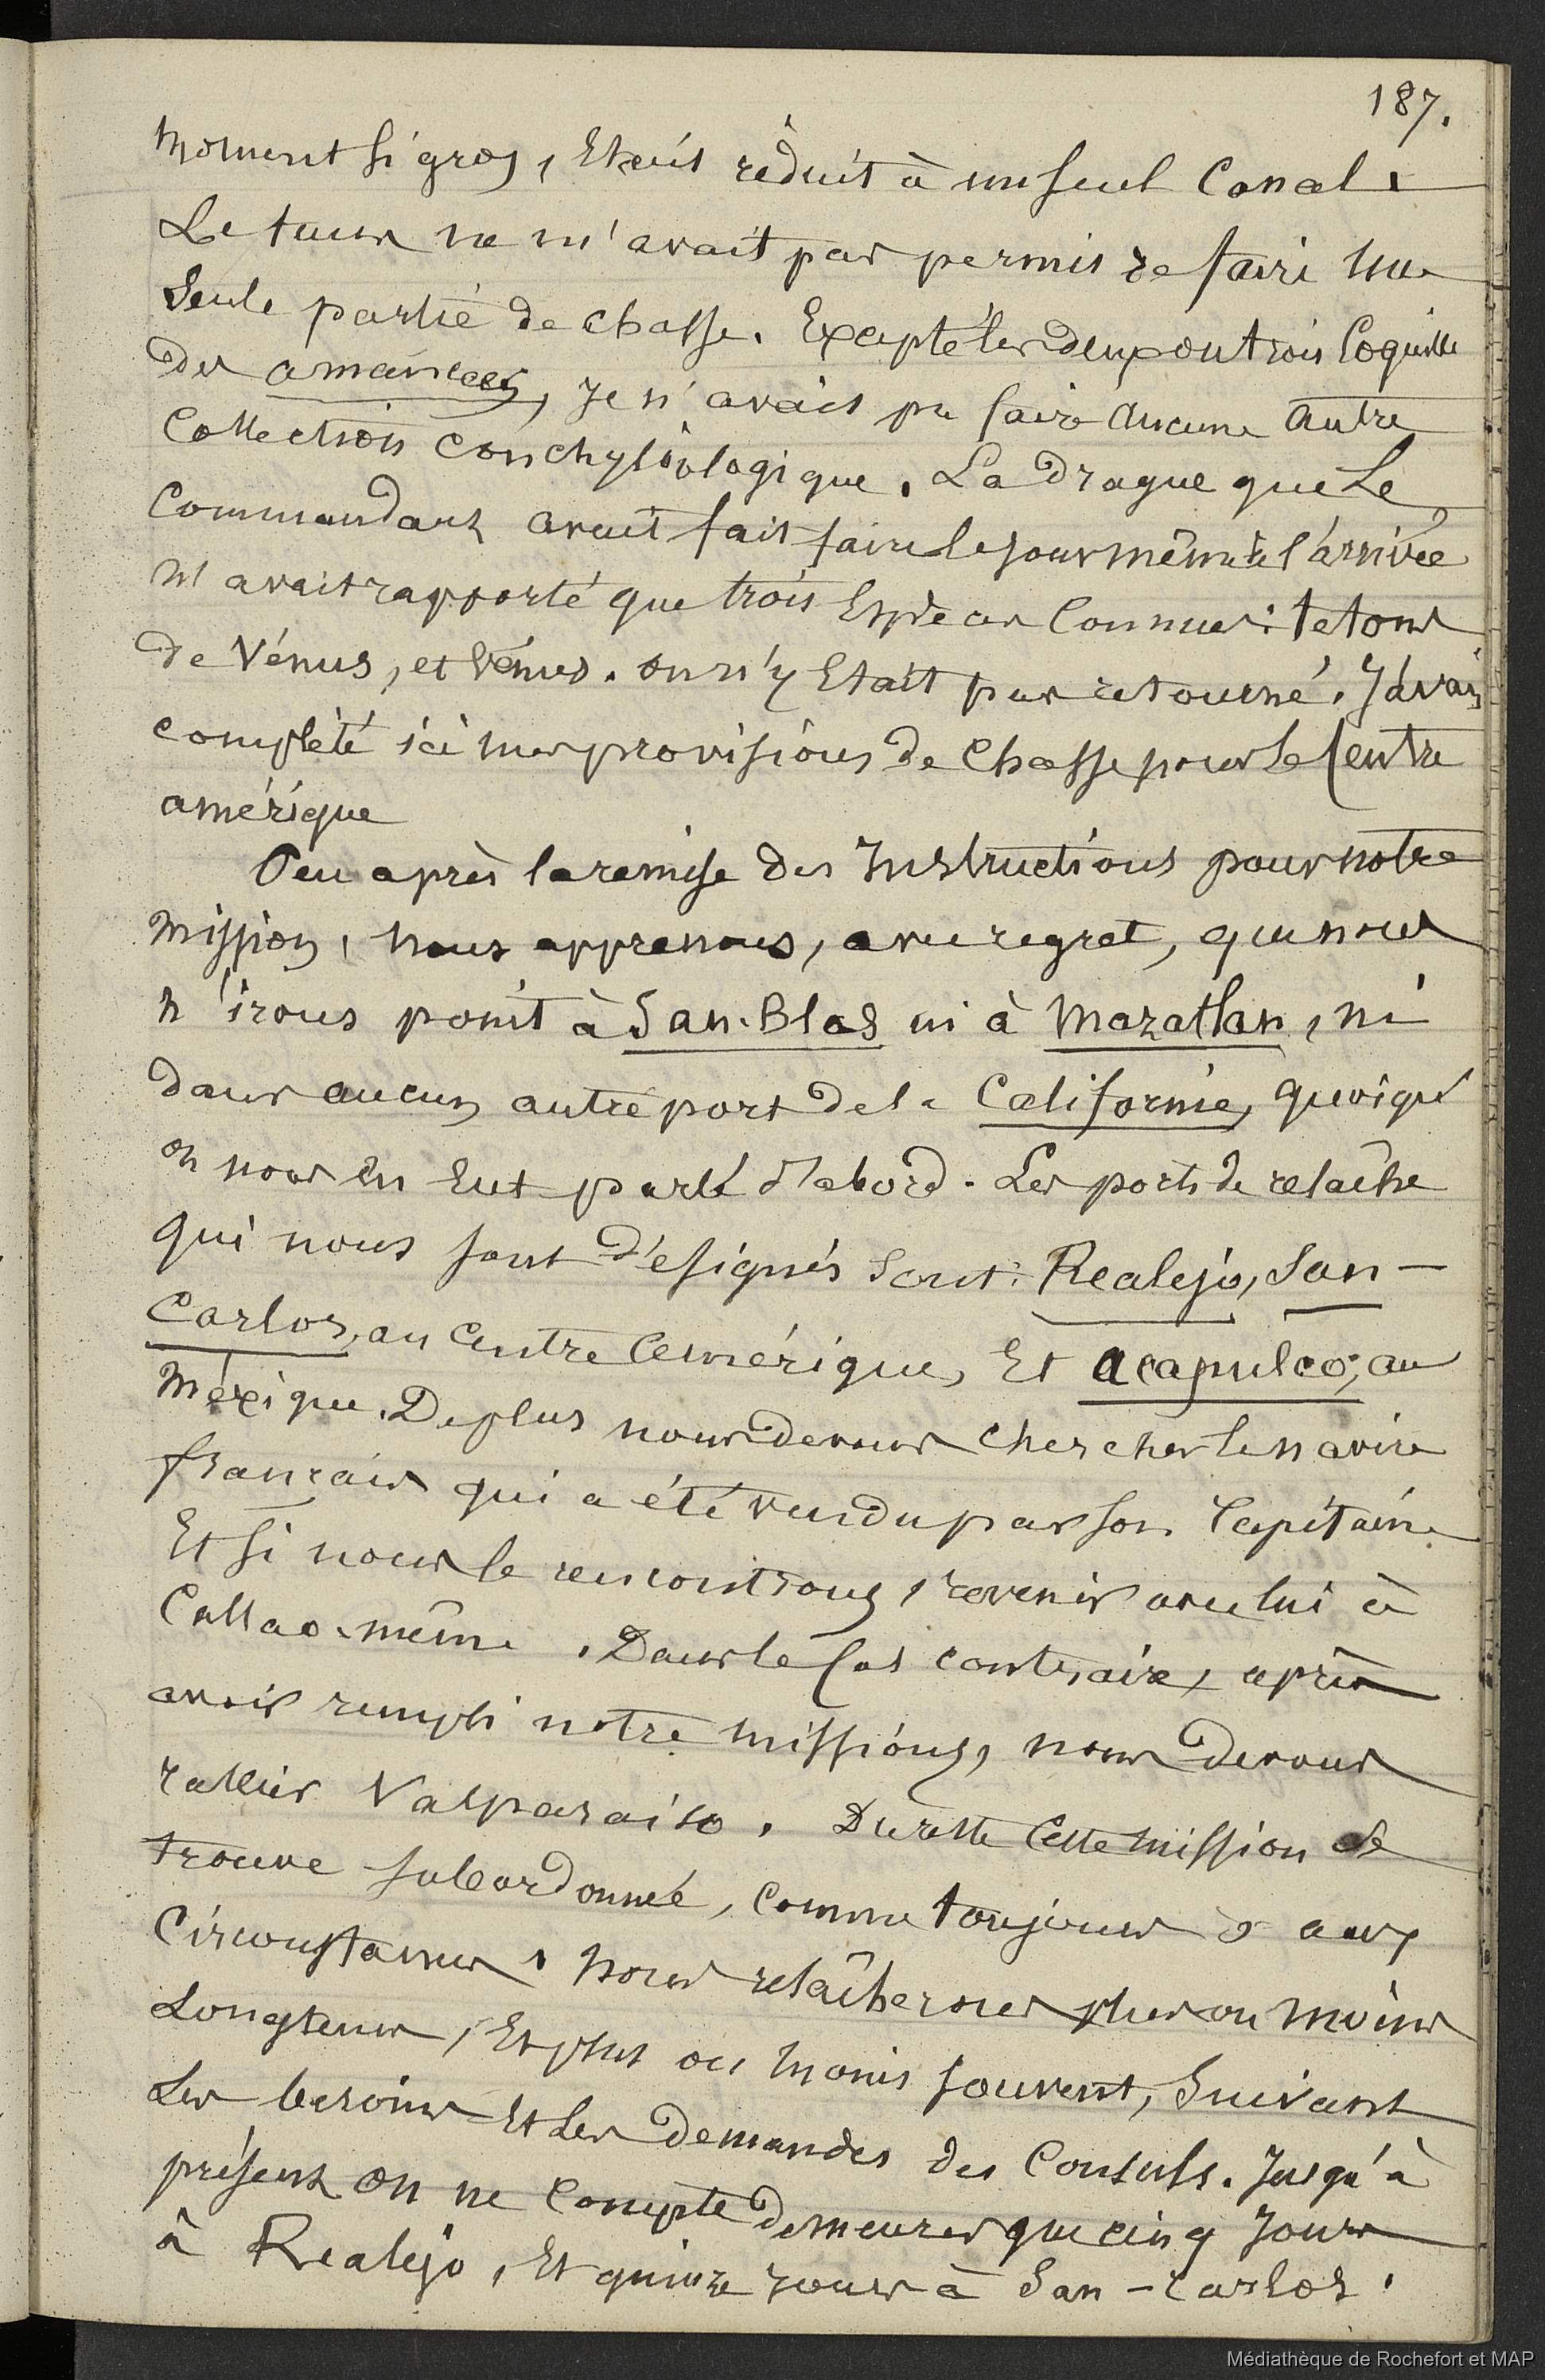 187.
moment si gros, Etait réduit à un seul Canal.
Le tems ne m'avait pas permis de faire une
Seule partie de chasse. Excepté les deux ou trois Coquilles
des amancaes, je n'avais pu faire aucune autre
Collection conchyliologique. La Drague que le
Commandant avait fait faire le jour même de l'arrivée
n'avait rapporté que trois Espèces Connues : tetons
de Vénus, et Vénus. on n'y Etait pas retourné. J'avais
complété ici mes provisions de Chasse pour le Centre
amérique
Peu après la remise des Instructions pour notre
mission, nous apprenons, avec regret, que nous
n'irons point à San-Blas ni à Mazatlan, ni
dans aucun autre port de la Californie, quoiqu'
on nous en Eut parlé d'abord. Les ports de relâche
qui nous sont désignés sont : Realejo, San-
Carlos, au Centre Amérique, Et acapulco, au
Méxique. De plus nous devons chercher le navire
français qui a été vendu par son Capitaine
Et si nous le rencontrons, revenir avec lui à
Callao même. Dans le Cas contraire, après
avoir rempli notre mission, nous devons
rallier Valparaiso. Du reste Cette mission se
trouve subordonnée, comme toujours aux
Circonstances. Nous relâcherons plus ou moins
Longtems, Et plus ou moins souvent, Suivant
Les besoins Et Les demandes des Consuls. Jusqu'à
présent on ne Compte demeurer que cinq Jours
à Realejo, Et quinze jours à San-Carlos.
Médiathèque de Rochefort et MAP